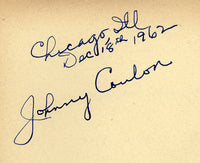 Chicago Ill
Dec 18th 1962
Johnny Coulon